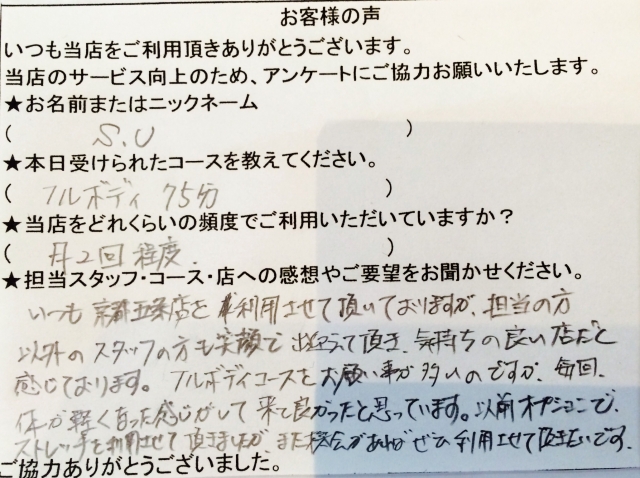 お客様の声
いつも当店をご利用頂きありがとうございます。
当店のサービス向上のため、アンケートにご協力お願いいたします。
★お名前またはニックネーム
( S.U )
★本日受けられたコースを教えてください。
( フルボディ 75分 )
★当店をどれくらいの頻度でご利用いただいていますか？
( 月2回程度. )
★担当スタッフ・コース・店への感想やご要望をお聞かせください。
いつも京都五条店を利用させて頂いておりますが、担当の方
以外のスタッフの方も笑顔で出迎えて頂き、気持ちの良い店だと
感じております。フルボディコースをお願い事が多いのですが、毎回、
体が軽くなった感じがして来て良かったと思っています。以前オプションで、
ストレッチを利用させて頂きましたが、また機会があればぜひ利用させて頂きたいです。
ご協力ありがとうございました。